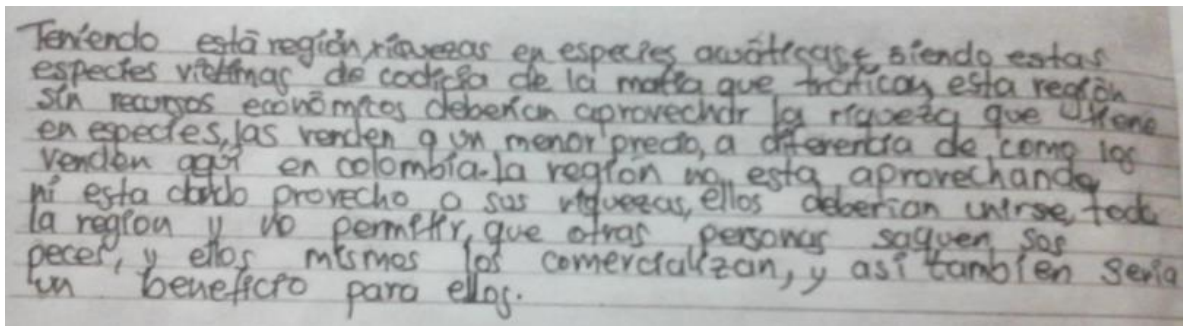 Teniendo está región riquezas en especies acuáticas, siendo estas
especies victimas de codicia de la mafia que trafican esta región
sin recursos económicos deberian aprovechar la riqueza que tiene
en especies, las venden a un menor precio, a diferencia de como las
venden aquí en colombia. la región no esta aprovechando
ni esta dando provecho a sus riquezas, ellos deberian unirse, toda
la region y no permitir, que otras personas saquen sos
peces, y ellos mismos los comercializan, y asi tambien seria
un beneficio para ellos.